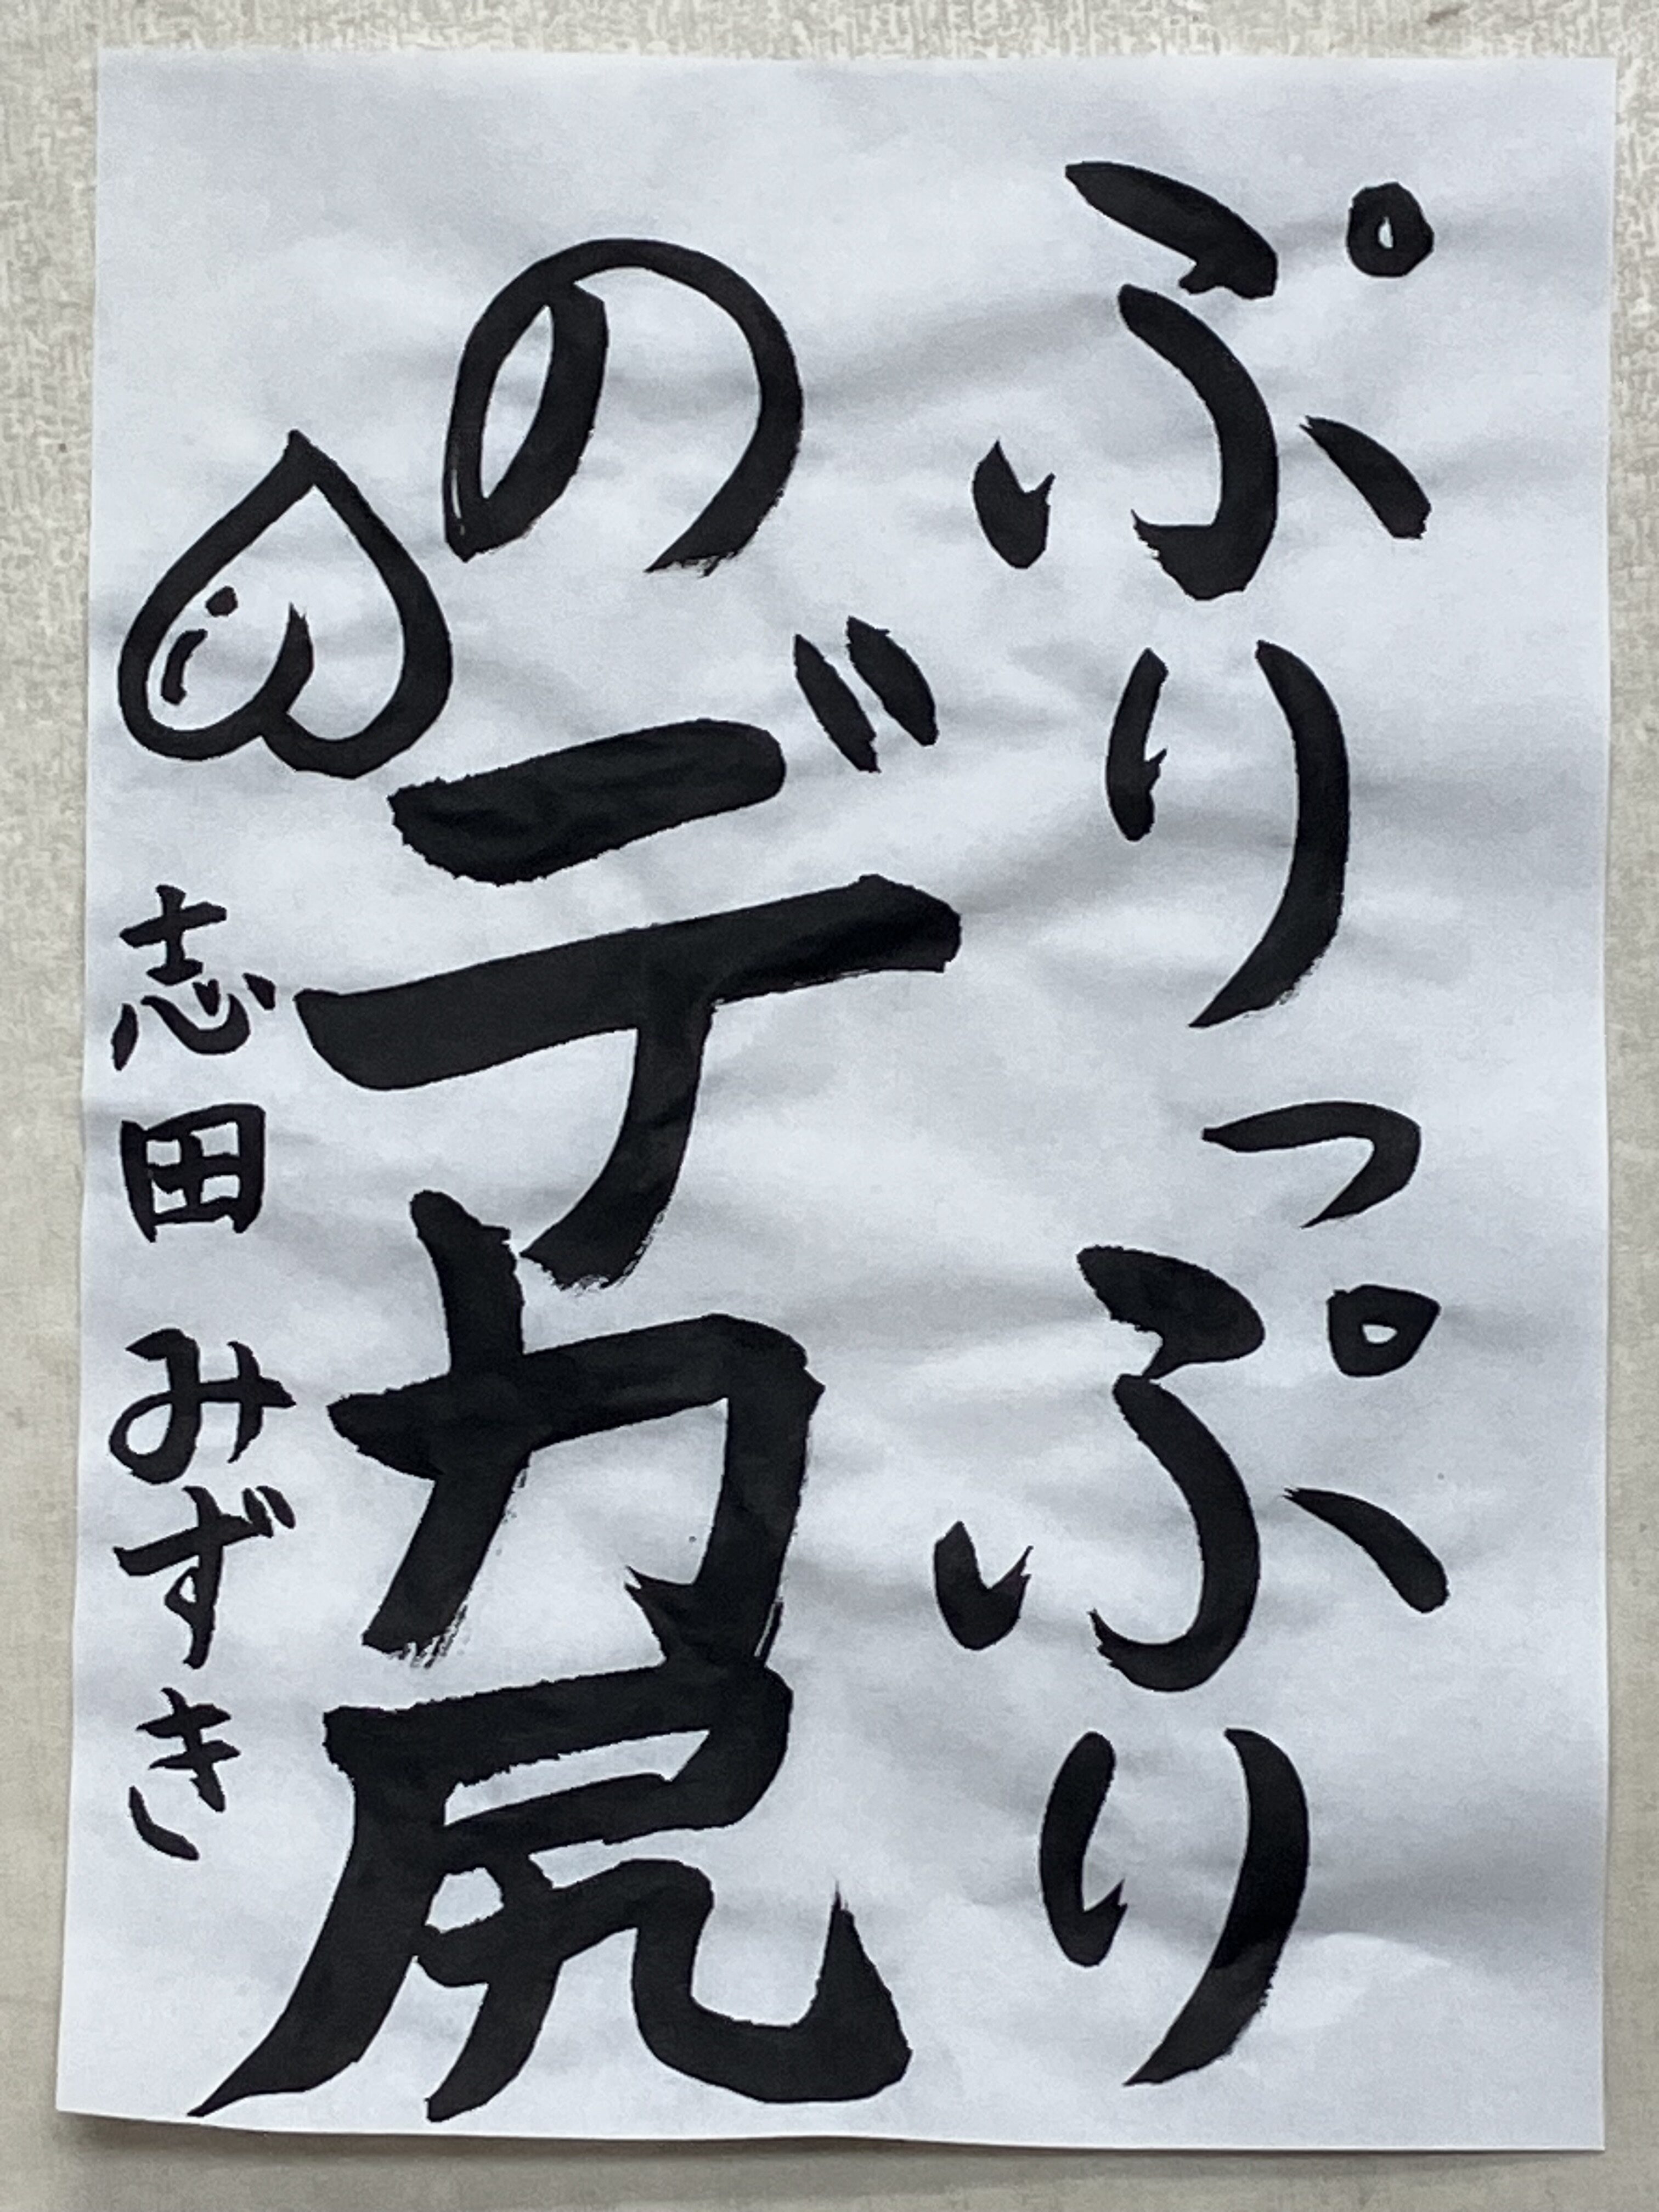 ぷりっぷり
のデカ尻
志田みずき